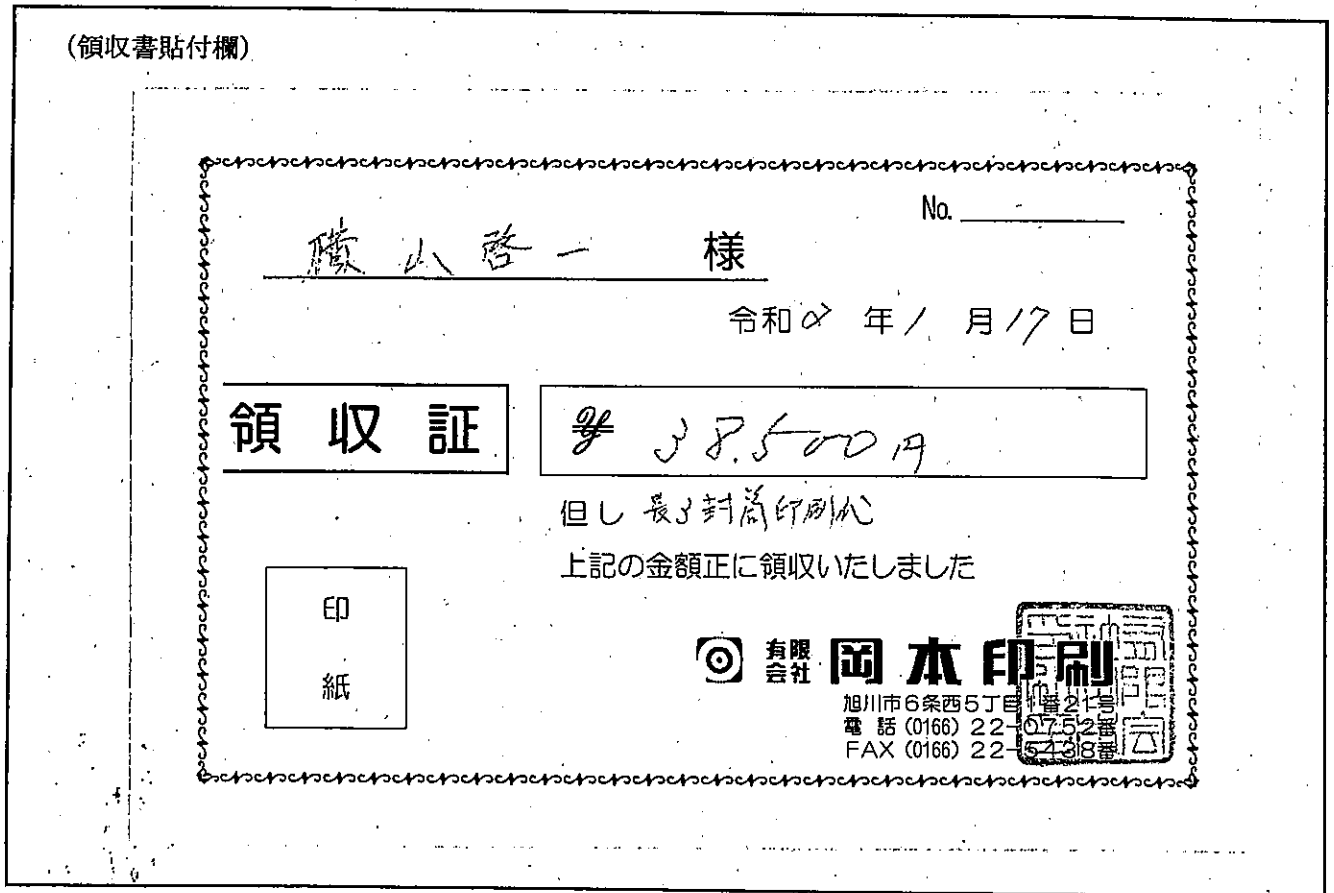 (領収書貼付欄)
No.
横山啓一 様
令和2年1月17日
領収証
¥ 38.500円
但し 長3封筒印刷代
上記の金額正に領収いたしました
印
紙
有限会社 岡本印刷
旭川市6条西5丁目1番21号
電話(0166)22-0752番
FAX(0166)22-5438番